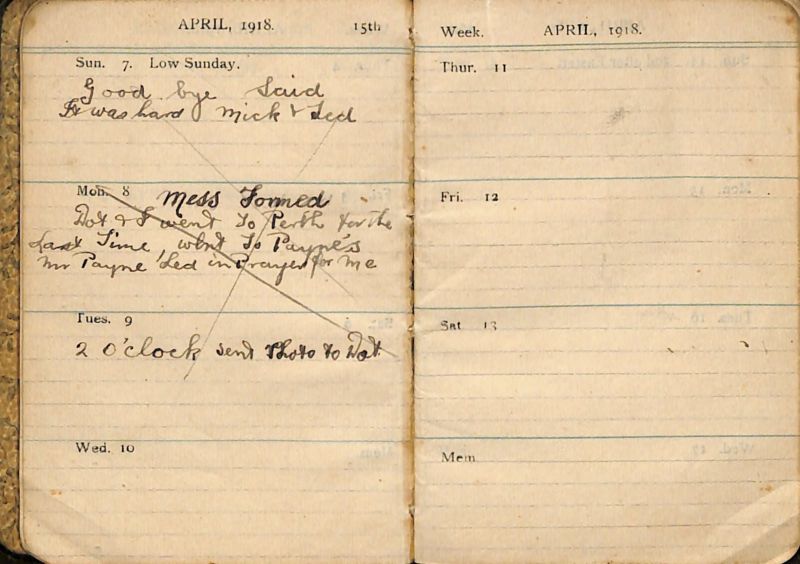 APRIL, 1918. 15th
Sun. 7. Low Sunday.
Good bye Said
It was hard Mick & Ted
Mon. 8 Mess Formed
Dot & I went to Perth for the
Last Time, went To Payne's
Mr Payne Led in Prayer for Me
Tues. 9
2 O'clock sent Photo to Dot
Wed. 10
Week. APRIL, 1918.
Thur. 11
Fri. 12
Sat 13
Mem